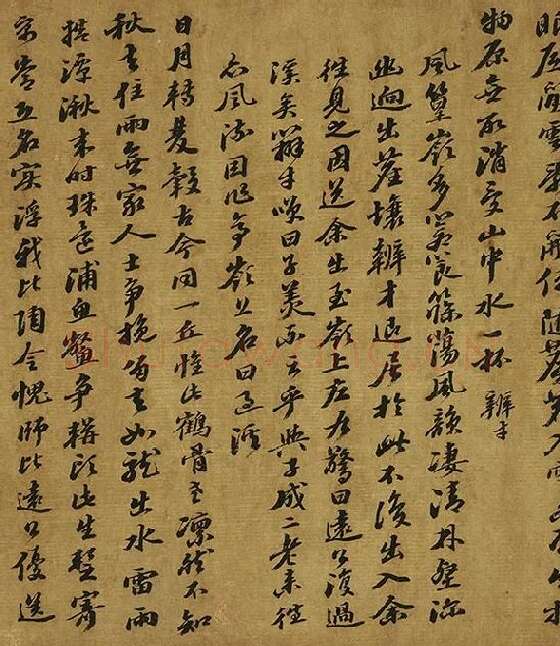 物原無取消受山中水一杯 辯才
風篁嶺多蒼筤篠簜風韻凄清林壑
幽迥出塵壤辯才退居於此不復出入余
往見之因送余出至嶺上左右驚曰遠公復過
溪矣辯才咲曰子美不云乎與子成二老來往
亦風流因作亭嶺上名曰過溪
日月轉雙轂古今同一丘惟此鶴骨老凛然不知
秋去住兩無家人士爭挽留去如龍出水雷雨
捲潭湫來時珠還浦魚鱉爭駢頭此生暫寄
寓常恐名實浮我比陶令愧師比遠公優送